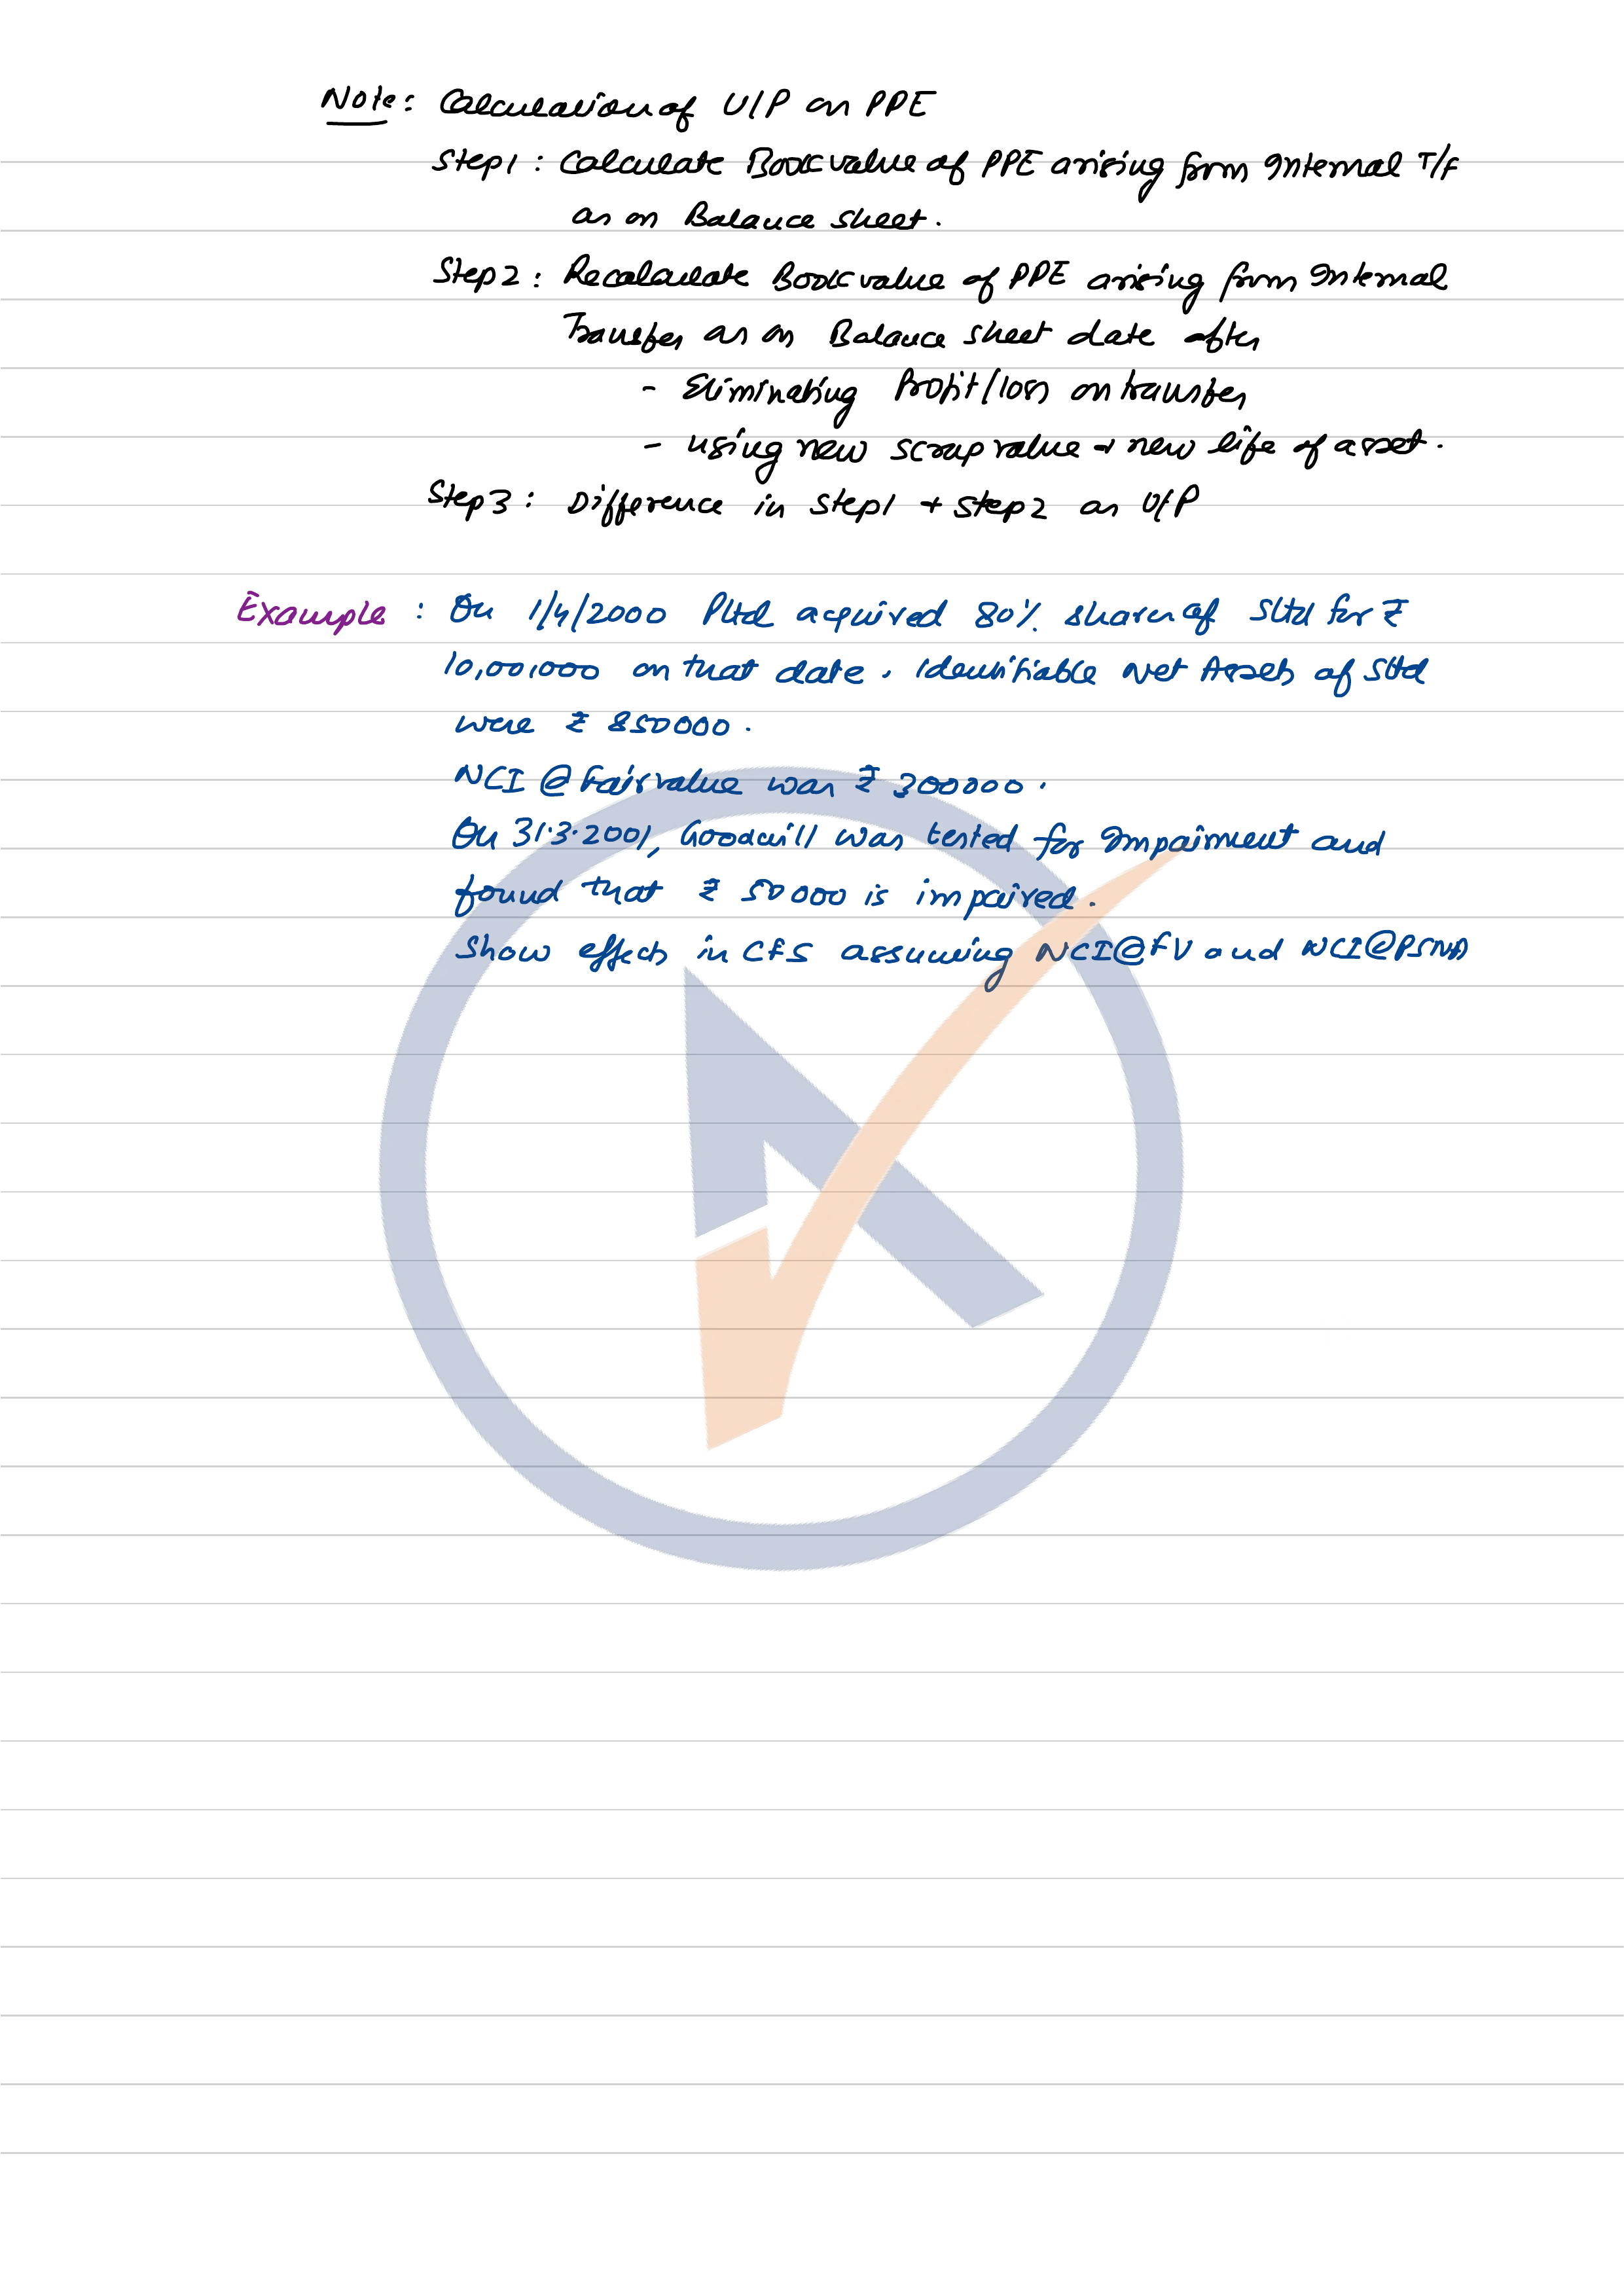 Note: Calculation of U/P on PPE
Step1 : Calculate Book value of PPE arising from Internal T/f
as on Balance sheet.
Step2 : Recalculate Book value of PPE arising from Internal
Transfer as on Balance sheet date after
- Eliminating Profit/loss on transfer
- using new scrap value & new life of asset.
Step3 : Difference in Step1 & Step2 as U/P
Example : On 1/4/2000 Pltd acquired 80% shares of Sltd for ₹
10,00,000 on that date. Identifiable Net Assets of Sltd
were ₹ 850000.
NCI @ Fair value was ₹ 300000.
On 31.3.2001, Goodwill was tested for Impairment and
found that ₹ 50000 is impaired.
Show effects in CFS assuming NCI@FV and NCI@PSNA